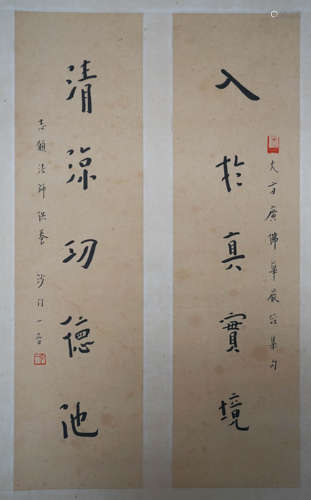 大方廣佛華嚴經集句
入於真實境
清涼功德池
志願法師供養 沙門一音